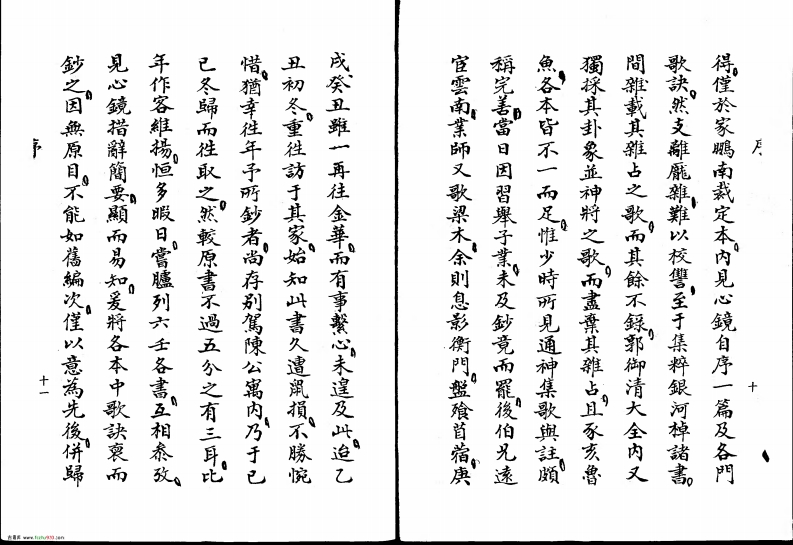 序
得僅於家鵬南裁定本內見心鏡自序一篇及各門
歌訣然支離龐雜難以校讐至于集粹銀河棹諸書
間雜載其雜占之歌而其餘不錄郭御清大全內又
獨採其卦象並神將之歌而盡棄其雜占且豕亥魯
魚各本皆不一而足惟少時所見通神集歌與註頗
稱完善當日因習舉子業未及鈔竟而罷後伯兄遠
宦雲南業師又歌梁木余則息影衡門盤飱苜蓿庚
十
戌癸丑雖一再往金華而有事繫心未遑及此迨乙
丑初冬重往訪于其家始知此書久遭鼠損不勝惋
惜猶幸往年予所鈔者尚存別駕陳公寓內乃于己
巳冬歸而往取之然較原書不過五分之有三耳比
年作客維揚恒多暇日嘗臚列六壬各書互相叅攷
見心鏡措辭簡要顯而易知爰將各本中歌訣裒而
鈔之因無原目不能如舊編次僅以意為先後併歸
序
十一